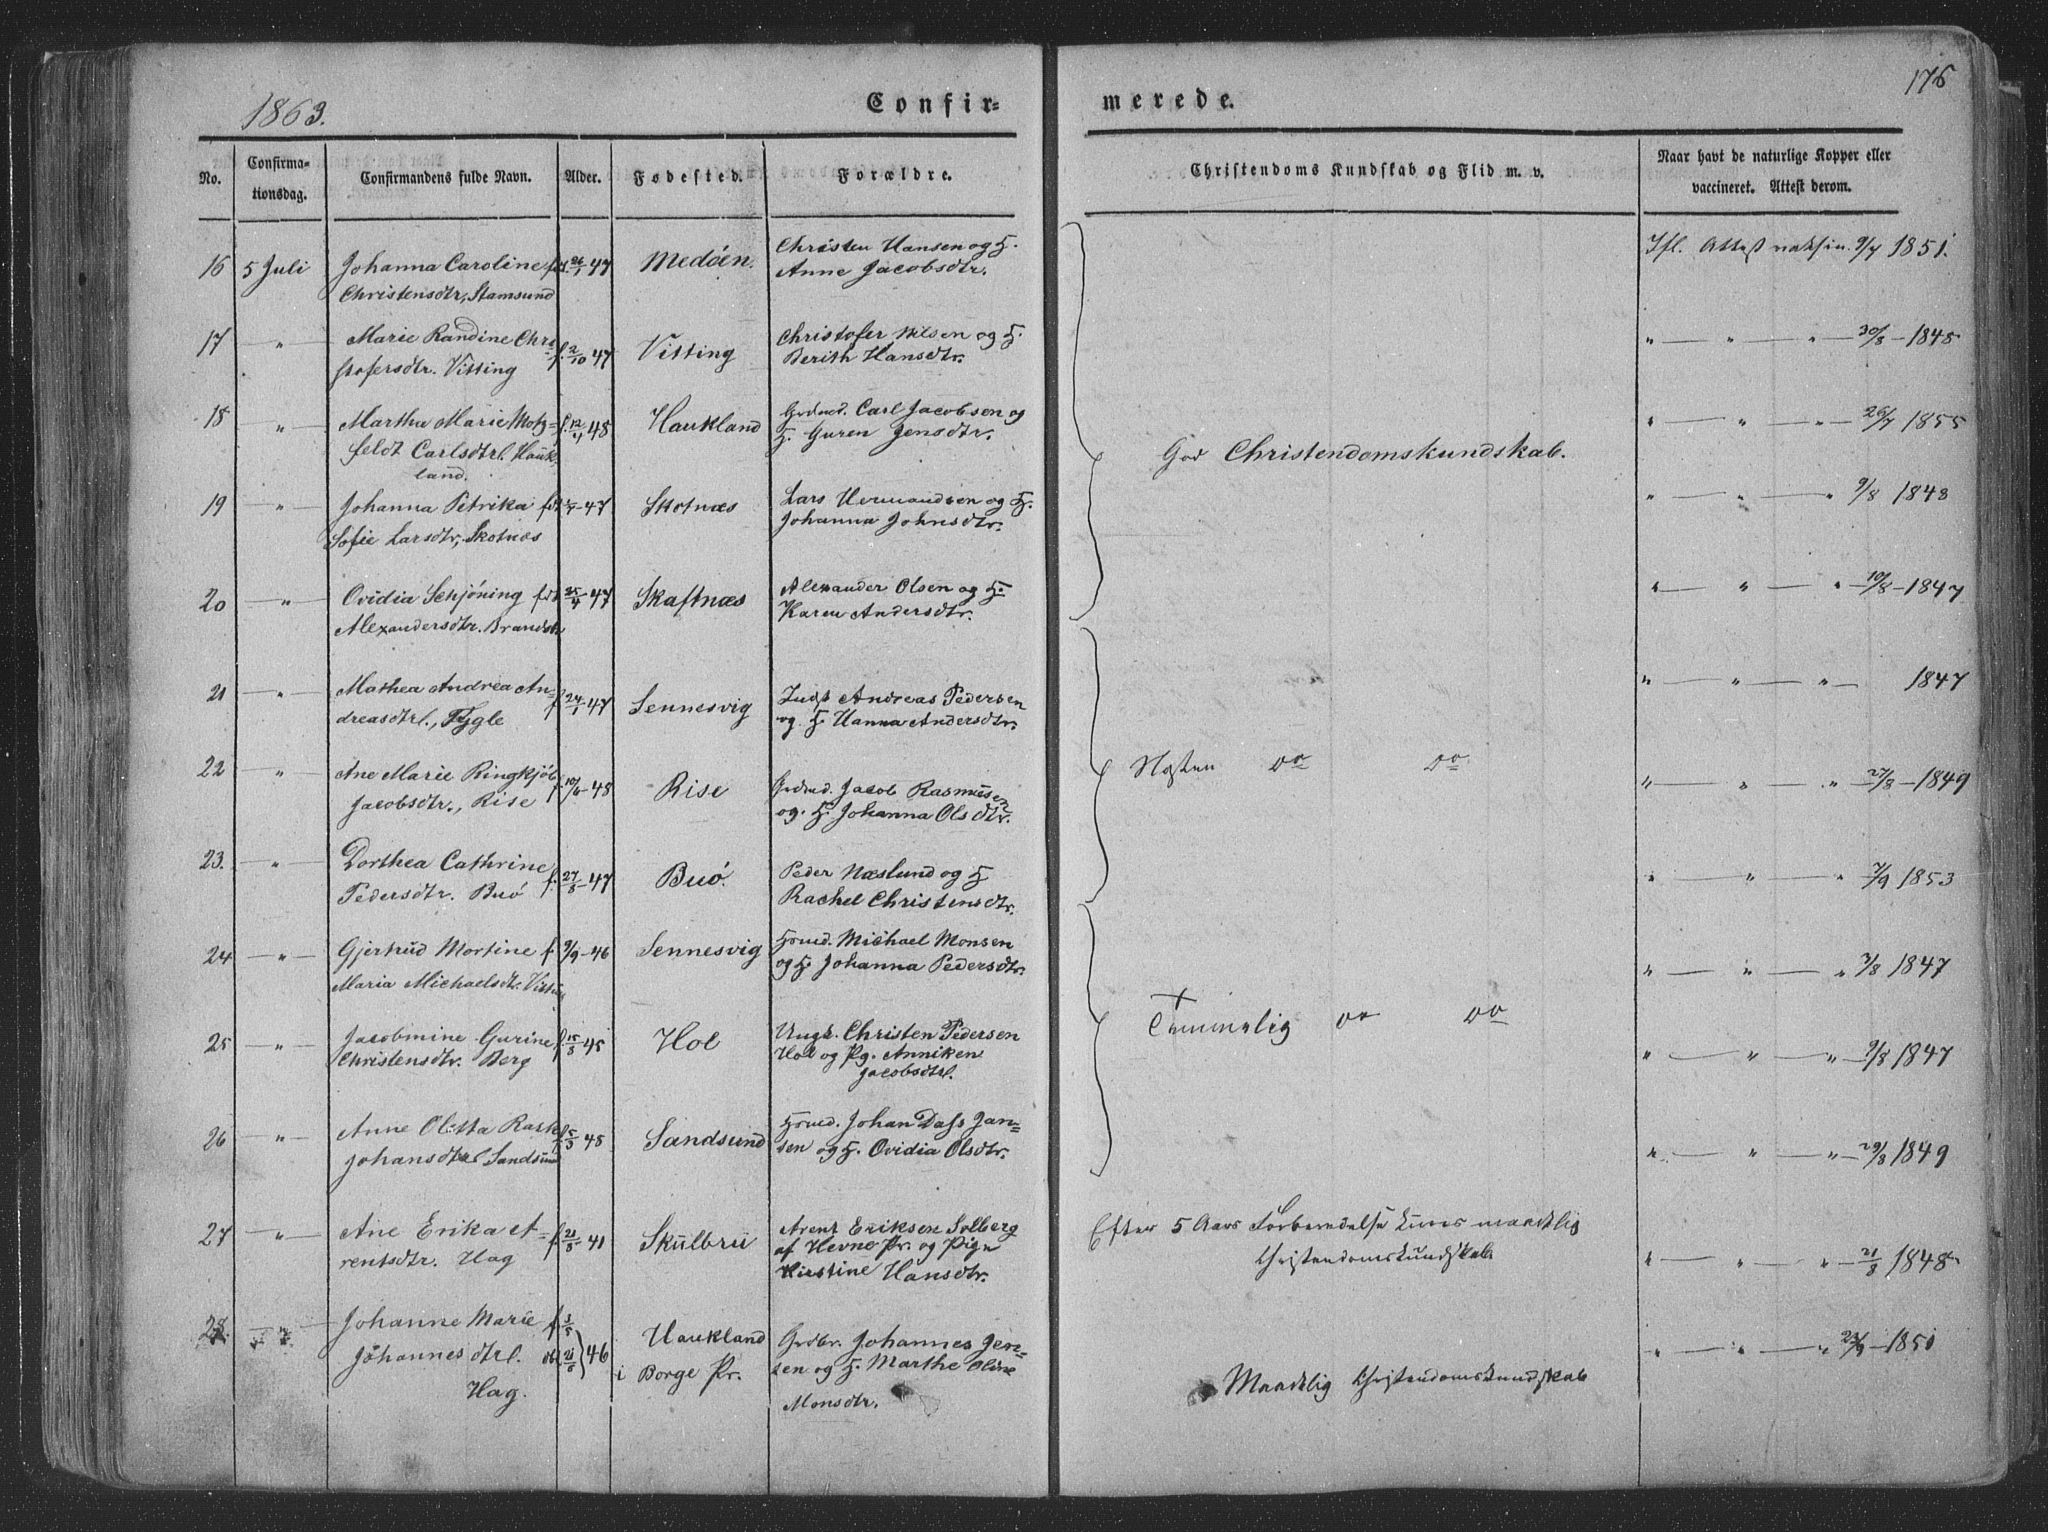 1863.
Confir-
merede.
176
No.
Confirma-
tionsdag.
Confirmandens fulde Navn.
Alder.
Fødested.
Forældre.
Christendoms Kundskab og Flid m. v.
Naar havt de naturlige Kopper eller
vaccineret. Attest derom.
16 5 Juli Johanna Caroline fdt 26/1 47 Medöen. Christen Hansen og H.
Christensdtr, Stamsund Anne Jacobsdtr.
Ifl. Attest vaksin. 9/7 1851.
17 " Marie Randine Chri- f. 2/10 47 Vitting Christofer Nilsen og H.
stofersdtr. Vitting Berith Hansdtr.
" " " 30/8 1848
18 " Martha Marie Motz- f. 12/4 48 Haukland Grdmd. Carl Jacobsen og
feldt Carlsdtr. Hauk- H. Guren Jensdtr.
land.
" " " 26/7 1855
God Christendomskundskab.
19 " Johanna Petrika fdt 47 Skotnæs Lars Hermandsen og H.
Sofie Larsdtr, Skotnæs Johanna Johnsdtr.
" " " 9/8 1848
20 " Ovidia Schjöning fdt 25/4 47 Skaftnæs Alexander Olsen og H.
Alexandersdtr. Karen Andersdtr.
" " " 10/8 1847
21 " Mathea Andrea An- f 24/1 47 Sennesvig Inds Andreas Pedersen
dreasdtr., Fygle og H. Hanna Andersdtr.
" " " 1847
22 " Ane Marie Ringkjöb f 10/6 48 Rise Grdmd. Jacob Rasmusen
Jacobsdtr., Rise og H. Johanna Olsdtr.
Næsten do do
" " " 27/8 1849
23. " Dorthea Cathrine f. 27/8 47 Buö. Peder Næslund og H
Pedersdtr. Buö Rachel Christensdtr.
" " " 7/9 1853
24 " Gjertrud Mortine f. 9/9 46 Sennesvig Hmd. Michael Monsen
Maria Michaelsdtr. og H. Johanna Pedersdtr.
" " " 3/8 1847
25 " Jacobmine Gurine f. 15/8 45 Hol Ungk. Christen Pedersen
Christensdtr. Berg Hol og Pg. Anniken
Jacobsdtr.
Temmelig do do
" " " 9/8 1847
26 " Anne Olitta Rask f. 5/3 48 Sandsund Hmd. Johan Dass Jan-
Johansdtr Sandsund sen og H. Ovidia Olsdtr.
" " " 29/8 1849
27 " Ane Erika A- f. 21/5 41 Skulbru Arent Eriksen Solberg
rentsdtr. Hag af Hevne Pr. og Pige
Kirstine Hansdtr.
Efter 5 Aars Forberedelse maadelig
Christendomskundskab
" " " 21/8 1848
28. " Johanne Marie f. 3/5 46 Haukland Grdbr. Johannes Jen-
Johannesdtr. db. 21/6 i Borge Pr. sen og H. Marthe Oline
Hag. Monsdtr.
Maadelig Christendomskundskab
" " " 23/9 1851